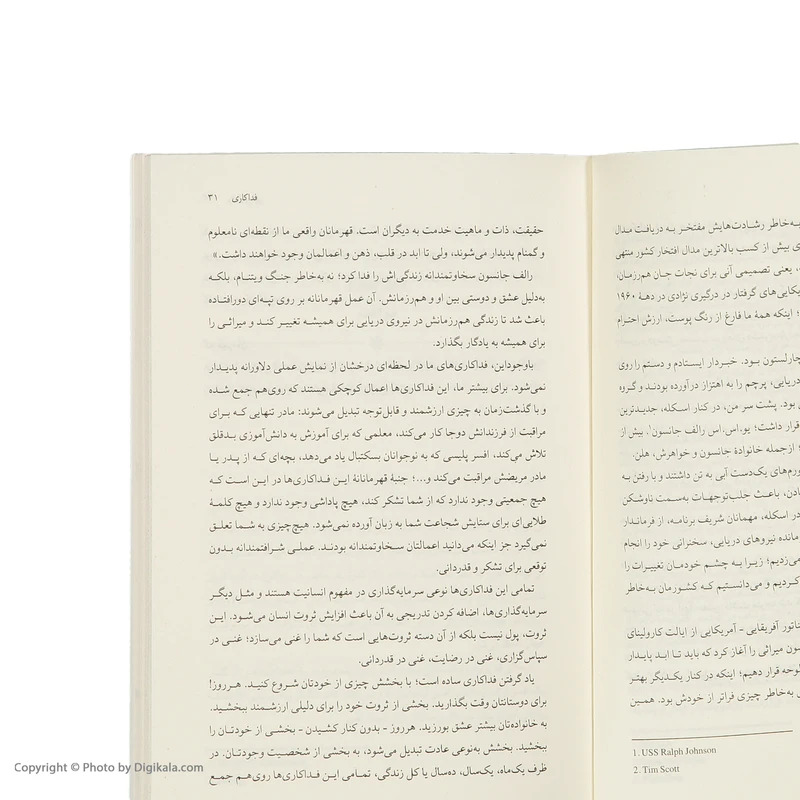 به‌خاطر رشادت‌هایش مفتخر به دریافت مدال
ی بیش از کسب بالاترین مدال افتخار کشور منتهی
، یعنی تصمیمی آنی برای نجات جان هم‌رزمان،
یکایی‌های گرفتار در درگیری نژادی در دههٔ ۱۹۶۰
؛ اینکه همهٔ ما فارغ از رنگ پوست، ارزش احترام
چارلستون بود. خبردار ایستادم و دستم را روی
دریایی، پرچم را به اهتزاز درآورده بودند و گروه
ی بود. پشت سر من، در کنار اسکله، جدیدترین
قرار داشت؛ یو.اس.اس رالف جانسون۱. بیش از
؛ ازجمله خانوادهٔ جانسون و خواهرش، هلن.
ورم‌های یک‌دست آبی به تن داشتند و با رفتن به
دادن، باعث جلب‌توجهات به‌سمت ناوشکن
در اسکله، مهمانان شریف برنامه، از فرماندار
مانده نیروهای دریایی، سخنرانی خود را انجام
می‌زدیم؛ زیرا به چشم خودمان تغییرات را
کردیم و می‌دانستیم که کشورمان به‌خاطر
ناتور آفریقایی - آمریکایی از ایالت کارولینای
سون میراثی را آغاز کرد که باید تا ابد پایدار
لوحه قرار دهیم؛ اینکه در کنار یکدیگر بهتر
ی به‌خاطر چیزی فراتر از خودش بود. همین
1. USS Ralph Johnson
2. Tim Scott
فداکاری ۳۱
حقیقت، ذات و ماهیت خدمت به دیگران است. قهرمانان واقعی ما از نقطه‌ای نامعلوم
و گمنام پدیدار می‌شوند، ولی تا ابد در قلب، ذهن و اعمالمان وجود خواهند داشت.»
رالف جانسون سخاوتمندانه زندگی‌اش را فدا کرد؛ نه به‌خاطر جنگ ویتنام، بلکه
به‌دلیل عشق و دوستی بین او و هم‌رزمانش. آن عمل قهرمانانه بر روی تپه‌ای دورافتاده
باعث شد تا زندگی هم‌رزمانش در نیروی دریایی برای همیشه تغییر کند و میراثی را
برای همیشه به یادگار بگذارد.
باوجوداین، فداکاری‌های ما در لحظه‌ای درخشان از نمایش عملی دلاورانه پدیدار
نمی‌شود. برای بیشتر ما، این فداکاری‌ها اعمال کوچکی هستند که روی‌هم جمع شده
و با گذشت‌زمان به چیزی ارزشمند و قابل‌توجه تبدیل می‌شوند: مادر تنهایی که برای
مراقبت از فرزندانش دوجا کار می‌کند، معلمی که برای آموزش به دانش‌آموزی بدقلق
تلاش می‌کند، افسر پلیسی که به نوجوانان بسکتبال یاد می‌دهد، بچه‌ای که از پدر یا
مادر مریضش مراقبت می‌کند و...؛ جنبهٔ قهرمانانهٔ این فداکاری‌ها در این است که
هیچ جمعیتی وجود ندارد که از شما تشکر کند، هیچ پاداشی وجود ندارد و هیچ کلمهٔ
طلایی‌ای برای ستایش شجاعت شما به زبان آورده نمی‌شود. هیچ‌چیزی به شما تعلق
نمی‌گیرد جز اینکه می‌دانید اعمالتان سخاوتمندانه بودند. عملی شرافتمندانه بدون
توقعی برای تشکر و قدردانی.
تمامی این فداکاری‌ها نوعی سرمایه‌گذاری در مفهوم انسانیت هستند و مثل دیگر
سرمایه‌گذاری‌ها، اضافه کردن تدریجی به آن باعث افزایش ثروت انسان می‌شود. این
ثروت، پول نیست بلکه از آن دسته ثروت‌هایی است که شما را غنی می‌سازد؛ غنی در
سپاس‌گزاری، غنی در رضایت، غنی در قدردانی.
یاد گرفتن فداکاری ساده است؛ با بخشش چیزی از خودتان شروع کنید. هرروز!
برای دوستانتان وقت بگذارید. بخشی از ثروت خود را برای دلیلی ارزشمند ببخشید.
به خانواده‌تان بیشتر عشق بورزید. هرروز - بدون کنار کشیدن - بخشی از خودتان را
ببخشید. بخشش به‌نوعی عادت تبدیل می‌شود، به بخشی از شخصیت وجودتان. در
ظرف یک‌ماه، یک‌سال، ده‌سال یا کل زندگی، تمامی این فداکاری‌ها روی‌هم جمع
Copyright © Photo by Digikala.com